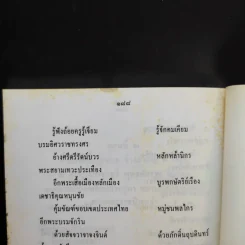 ๑๘๘
รู้พึงถ้อยครูรู้เจียม รู้จักคมเคียม
บรมอิศวราชทรงศร
อ้างศรีศรีรัตน์บวร หลักหล้านิกร
พระสยามเทวะประเทือง
อีกพระเสื้อเมืองหลักเมือง บูรพกษัตริย์เรือง
เดชาชิตคุณหนุนชัย
คุ้มขัณฑ์ขอบเขตประเทศไทย หมู่ชนพลไกร
อีกพระบรมจักริน
ด้วยสัจจวาจาจงจินต์ ด้วยภักดิ์นฤบดินทร์